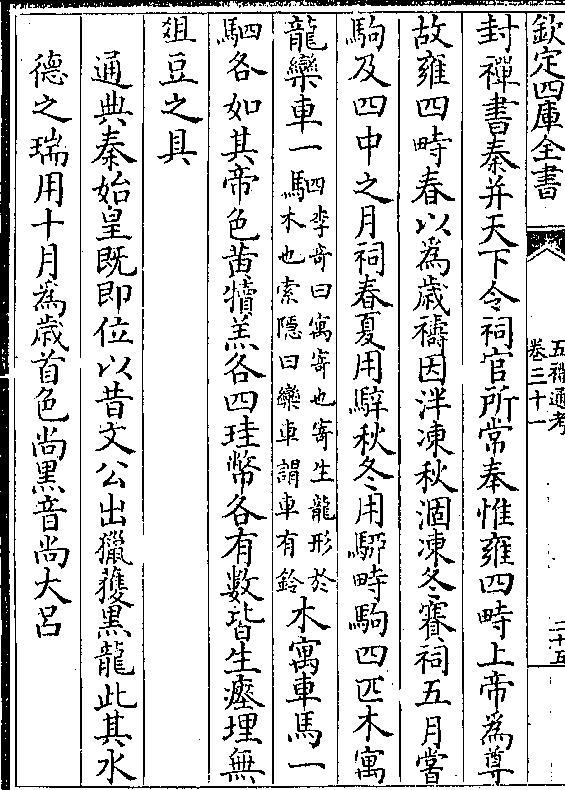 欽定四庫全書
五禮通考
卷三十一
二十五
封禪書秦并天下令祠官所常奉惟雍四畤上帝為尊
故雍四畤春以為歲禱因泮凍秋涸凍冬賽祠五月嘗
駒及四中之月祠春夏用騂秋冬用駵畤駒四匹木寓
龍欒車一駟
李竒曰寓寄也寄生龍形於
木也索隱曰欒車謂車有鈴
木寓車馬一
駟各如其帝色黃犢羔各四珪幣各有數皆生瘞埋無
俎豆之具
通典秦始皇既即位以昔文公出獵獲黑龍此其水
德之瑞用十月為歲首色尚黑音尚大呂